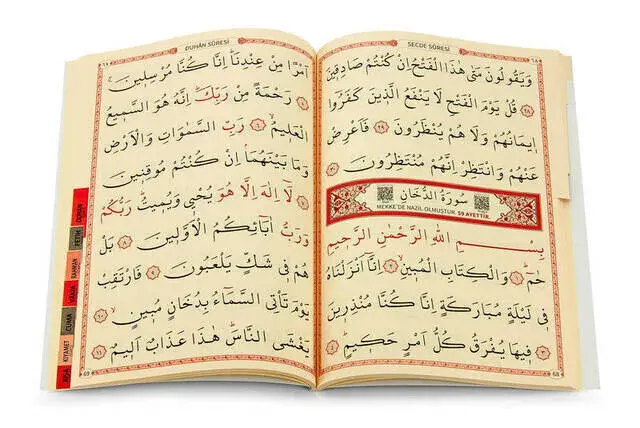 SECDE SÛRESİ
٦٨
وَيَقُولُونَ مَتٰى هٰذَا الْفَتْحُ اِنْ كُنْتُمْ صَادِقِينَ
﴿٢٨﴾ قُلْ يَوْمَ الْفَتْحِ لَا يَنْفَعُ الَّذِينَ كَفَرُوا
اِيمَانُهُمْ وَلَا هُمْ يُنْظَرُونَ ﴿٢٩﴾ فَاَعْرِضْ
عَنْهُمْ وَانْتَظِرْ اِنَّهُمْ مُنْتَظِرُونَ ﴿٣٠﴾
سُورَةُ الدُّخَانِ
MEKKE'DE NAZİL OLMUŞTUR. 59 AYETTİR.
بِسْمِ اللّٰهِ الرَّحْمٰنِ الرَّحِيمِ
حٰمٓ ﴿١﴾ وَالْكِتَابِ الْمُبِينِ ﴿٢﴾ اِنَّٓا اَنْزَلْنَاهُ
فِي لَيْلَةٍ مُبَارَكَةٍ اِنَّا كُنَّا مُنْذِرِينَ
﴿٣﴾ فِيهَا يُفْرَقُ كُلُّ اَمْرٍ حَكِيمٍ ﴿٤﴾
68
DUHÂN SÛRESİ
٦٩
اَمْرًا مِنْ عِنْدِنَا اِنَّا كُنَّا مُرْسِلِينَ
﴿٥﴾ رَحْمَةً مِنْ رَبِّكَ اِنَّهُ هُوَ السَّمِيعُ
الْعَلِيمُ ﴿٦﴾ رَبِّ السَّمٰوَاتِ وَالْاَرْضِ
وَمَا بَيْنَهُمَا اِنْ كُنْتُمْ مُوقِنِينَ
﴿٧﴾ لَٓا اِلٰهَ اِلَّا هُوَ يُحْيِي وَيُمِيتُ رَبُّكُمْ
وَرَبُّ اٰبَٓائِكُمُ الْاَوَّلِينَ ﴿٨﴾ بَلْ
هُمْ فِي شَكٍّ يَلْعَبُونَ ﴿٩﴾ فَارْتَقِبْ
يَوْمَ تَأْتِي السَّمَٓاءُ بِدُخَانٍ مُبِينٍ ﴿١٠﴾
يَغْشَى النَّاسَ هٰذَا عَذَابٌ اَلِيمٌ ﴿١١﴾
69
DUHAN
FETİH
RAHMAN
VAKIA
CUMA
KIYAMET